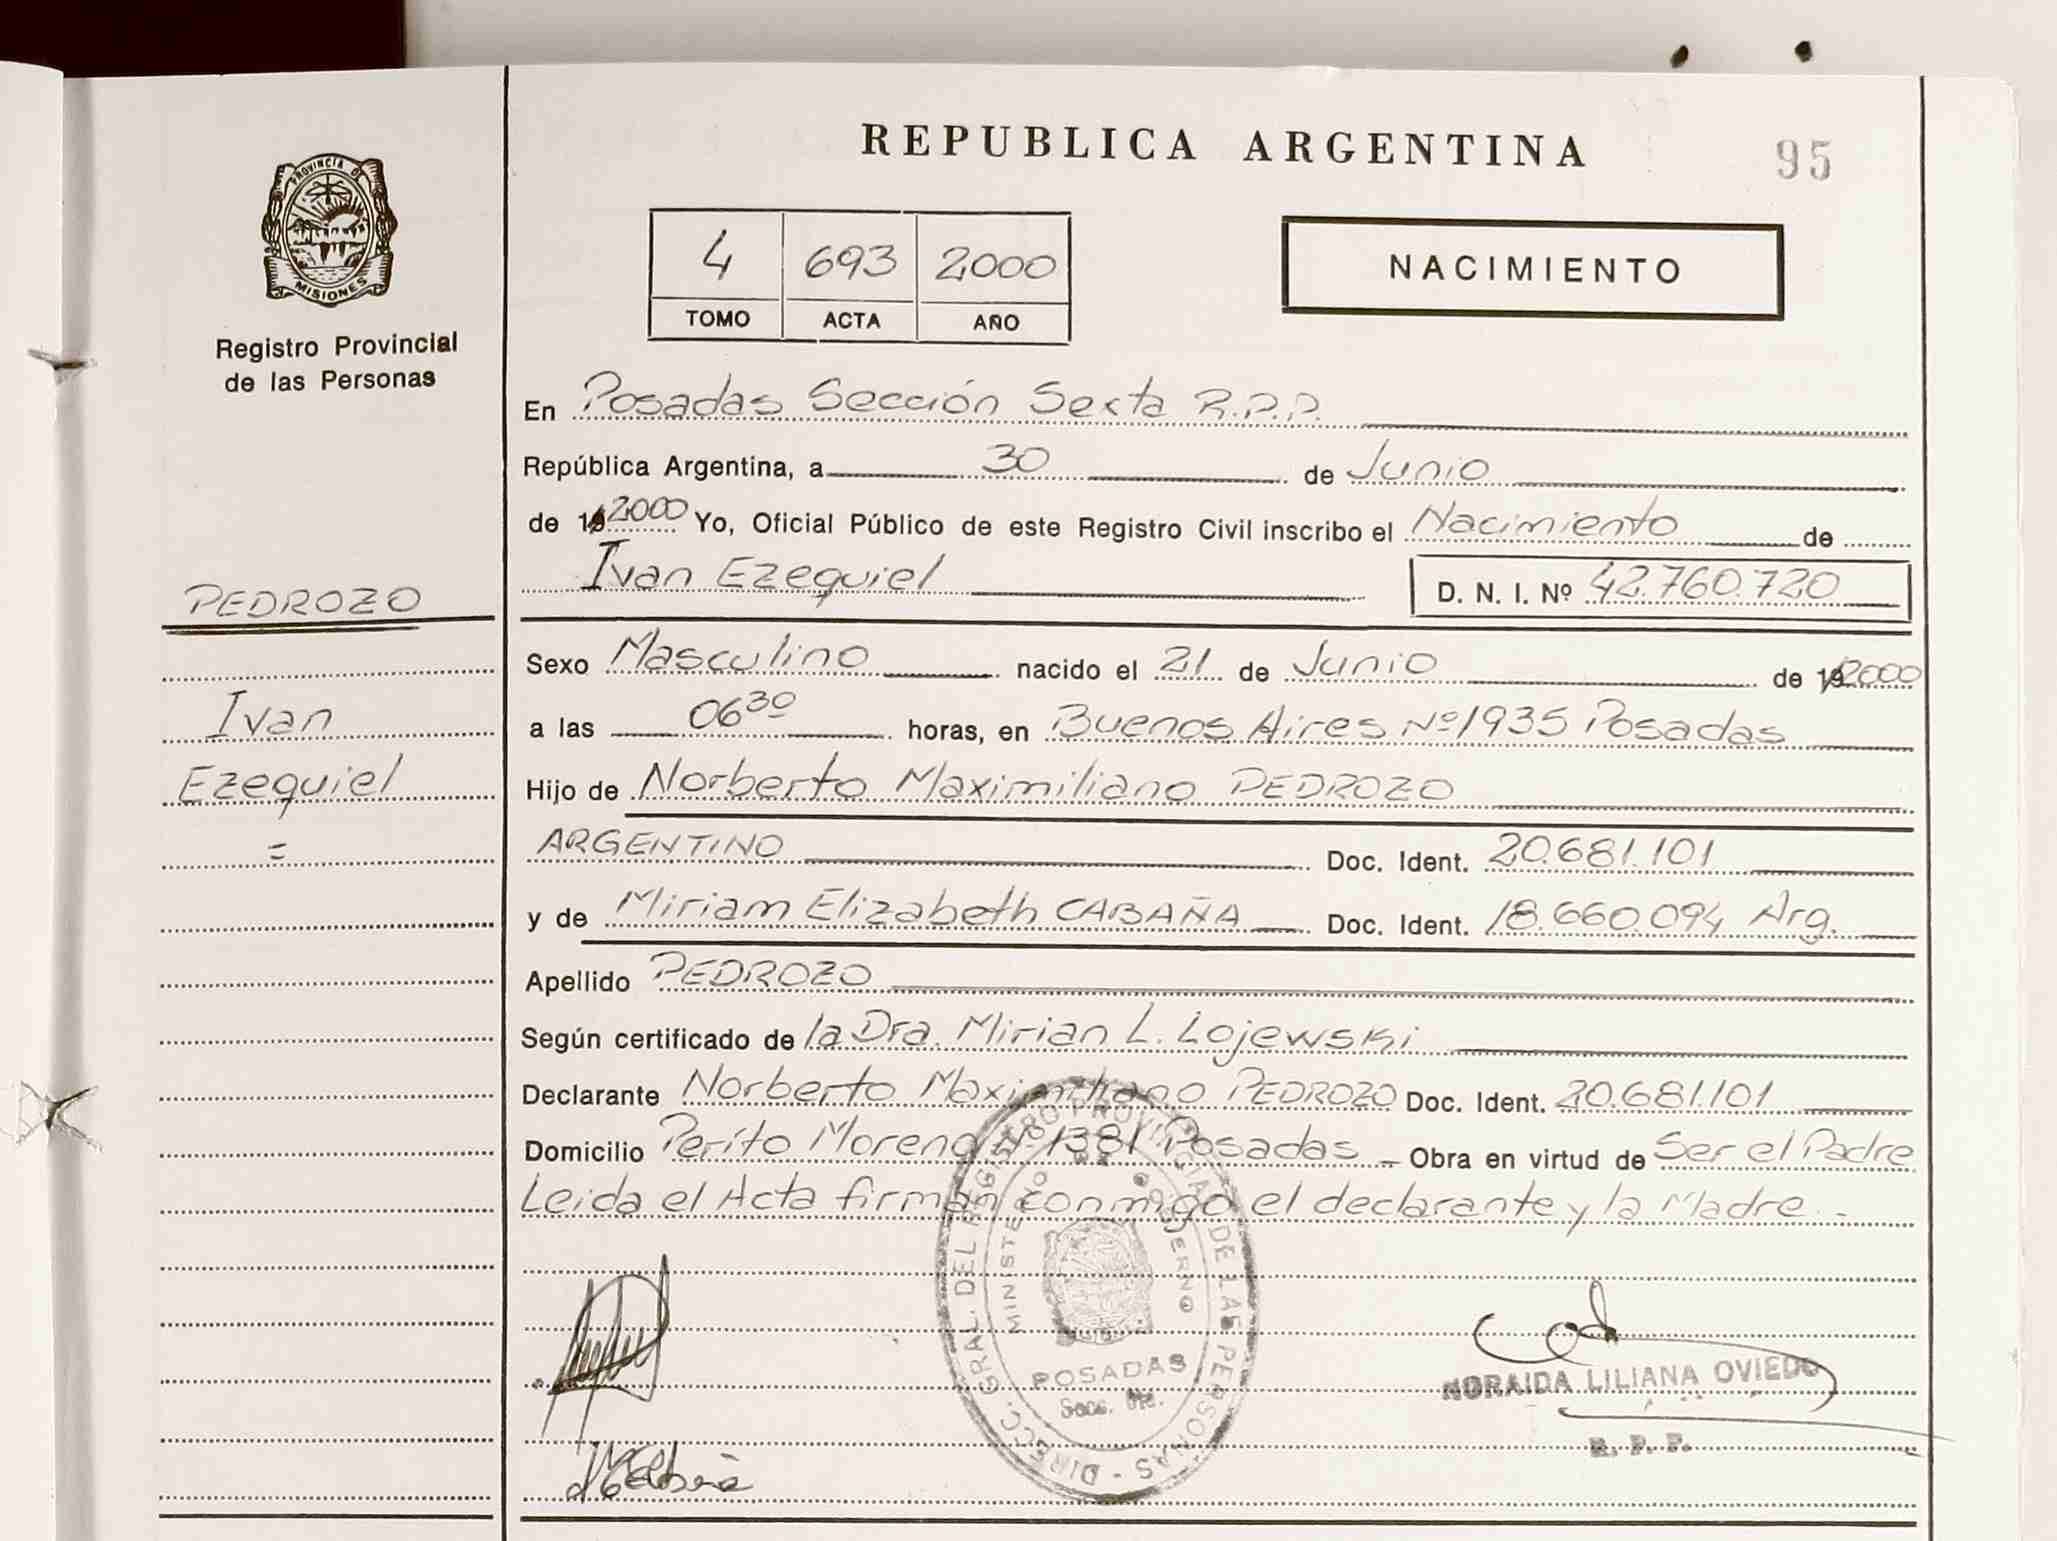 REPUBLICA ARGENTINA
95
PROVINCIA DE
MISIONES
Registro Provincial
de las Personas
4 693 2000
TOMO ACTA AÑO
NACIMIENTO
En Posadas Sección Sexta R.P.P.
República Argentina, a 30 de Junio
de 19 2000 Yo, Oficial Público de este Registro Civil inscribo el Nacimiento de
Ivan Ezequiel D. N. I. Nº 42.760.720
PEDROZO
Ivan
Ezequiel
=
Sexo Masculino nacido el 21 de Junio de 19 2000
a las 06³⁰ horas, en Buenos Aires Nº 1935 Posadas
Hijo de Norberto Maximiliano PEDROZO
ARGENTINO Doc. Ident. 20.681.101
y de Miriam Elizabeth CABAÑA Doc. Ident. 18.660.094 Arg.
Apellido PEDROZO
Según certificado de la Dra. Mirian L. Lojewski
Declarante Norberto Maximiliano PEDROZO Doc. Ident. 20.681.101
Domicilio Perito Moreno Nº 1381 Posadas - Obra en virtud de Ser el Padre
Leida el Acta firman conmigo el declarante y la Madre -
DIRECC. GRAL. DEL REGISTRO PROVINCIAL DE LAS PERSONAS -
MINISTERIO DE GOBIERNO
POSADAS
NORAIDA LILIANA OVIEDO
R. P. P.